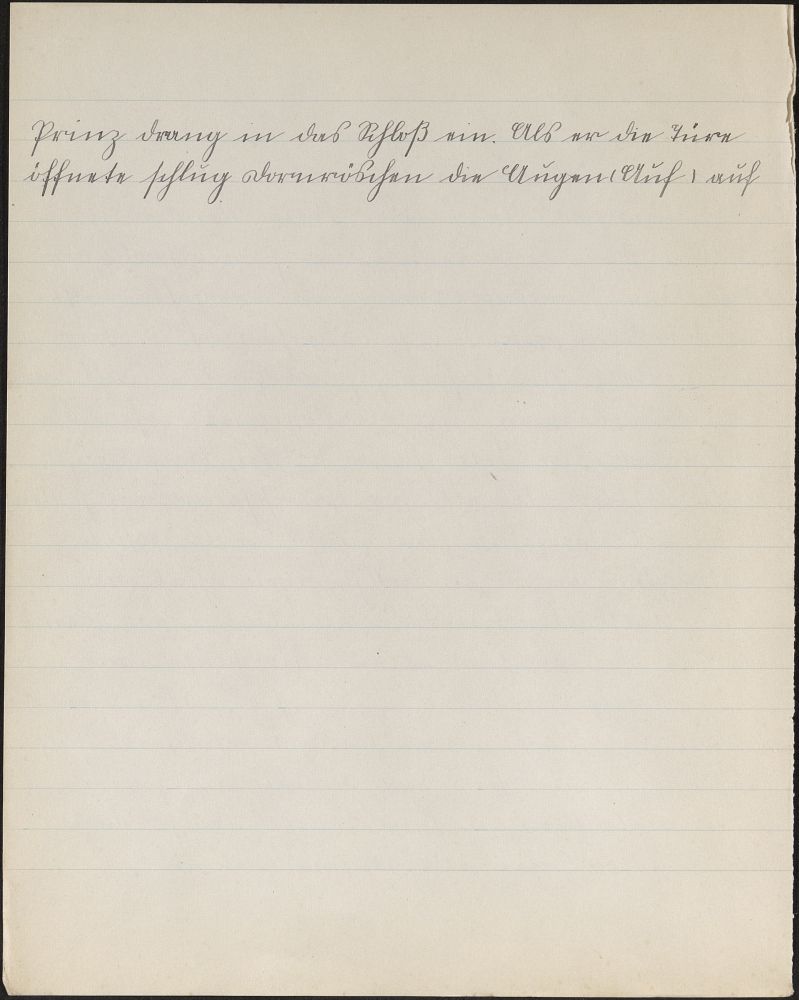 Prinz drang in das Schloß ein. Als er die Türe
öffnete schlug Dornröschen die Augen (Auf) auf